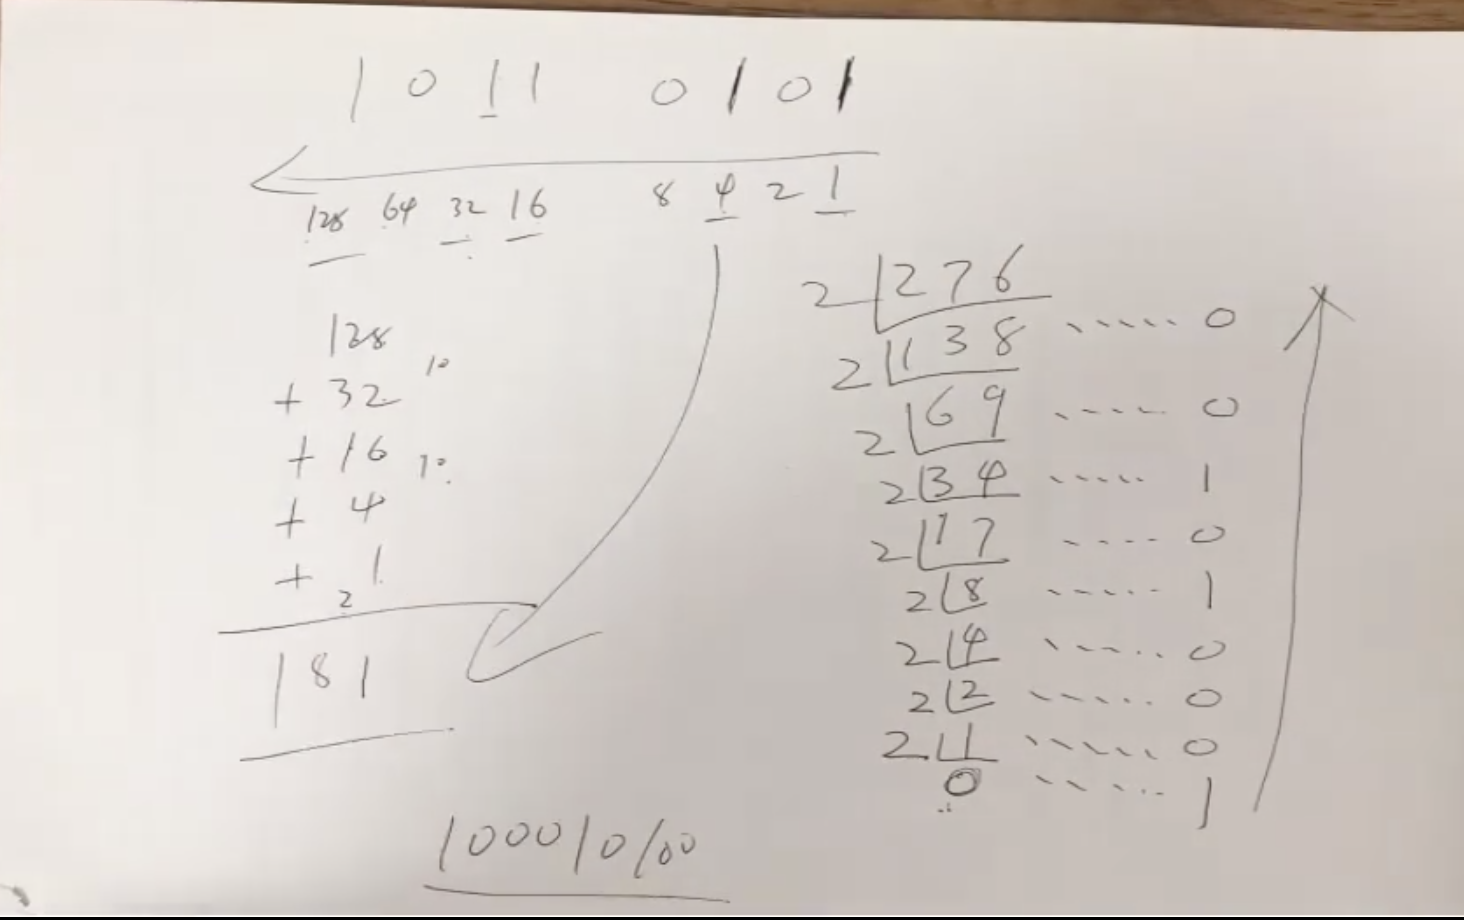 1 0 1 1 0 1 0 1
128 64 32 16 8 4 2 1
128
+ 32 10
+ 16 10
+ 4
+ 2 1
181
2 276
2 138 ..... 0
2 69 ..... 0
2 34 ..... 1
2 17 ..... 0
2 8 ..... 1
2 4 ..... 0
2 2 ..... 0
2 1 ..... 0
0 ..... 1
100010100